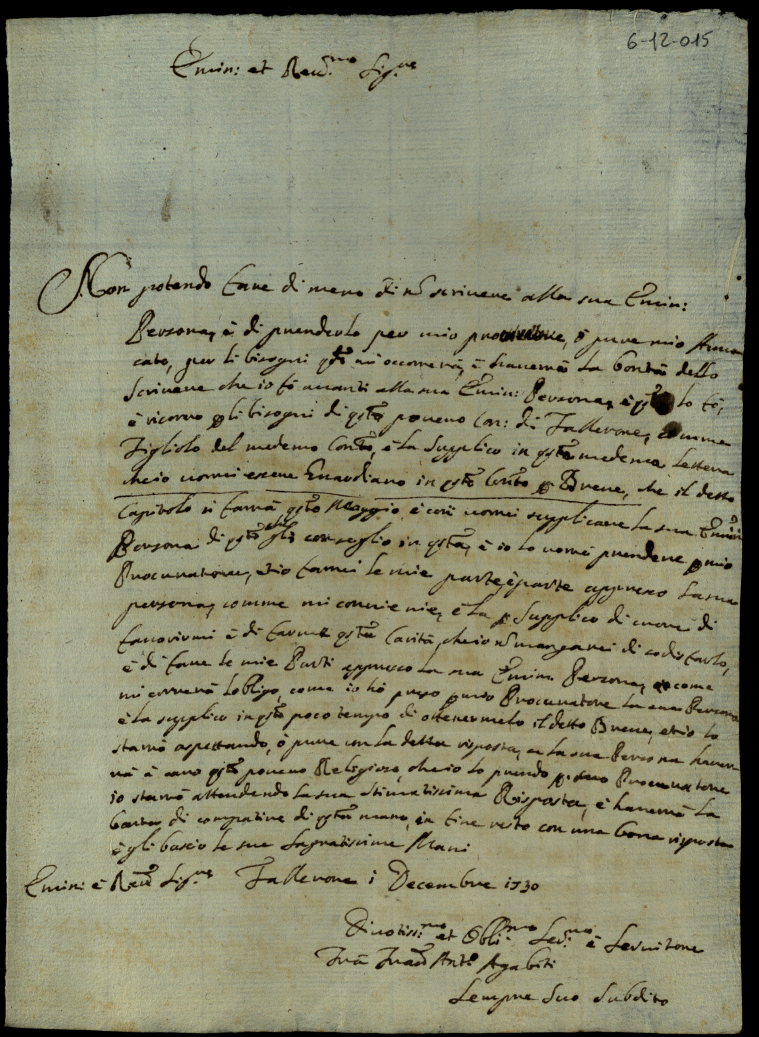 6-12-015
Emin: et Reud.mo Sig.re
Non potendo fare di meno di nõ scrivere alla sua Emin:
Persona, è di prenderlo per mio procuratore, ò pure mio Avvo
cato, per li bisogni q̃sto mi occorrerà, è haverà la bontà dello
scrivere che io fò avanti alla sua Emin: Persona, lo fò,
è ricorro p̱ li bisogni di q̃sto povero Con: di Fallerone, comme
Figliolo del medemo Conto, è la supplico in q̃sta medema lettera
che io vorrei essere Guardiano in q̃sto Conto p̱ Breve, che il detto
Capitolo si farrà q̃sto Maggio è così vorrei supplicare la sua Emin:
Persona di q̃sto conseglio in q̃sta, è io lo vorrei prendere p̱ mio
Procuratore, et io farrei le mie parte è parte appresso la sua
persona, comme mi conviene, è la supplico di cuore di
favorirmi è di farme q̃sta Carità, che io nõ mancarei di
è di fare le mie Parti appresso la sua Emin: Persona, come
mi correrà lobligo, come io hò preso p̱ mio Procuratore la sua Persona
è la supplico in q̃sto poco tempo di ottenermelo il detto Breve, et io lo
starrò aspettando, ò pure con la detta risposta, se la sua Persona haver
rà à caro q̃sto povero Religioso, che io lo prendo p̱ Procuratore
io starrò attendendo la sua stimatissima Risposta, è haverrà la
bontà di compatire di q̃sta mano, in fine resto con una bona risposta
è gli bascio le sue Sagratissime Mani
Emin: è Reud Sig.re Fallerone i Decembre 1730
Divotiss:mo et Obli:mo Ser:mo è Servitore
Frà Franc Ant.o Agabiti
Sempre Suo Subdito